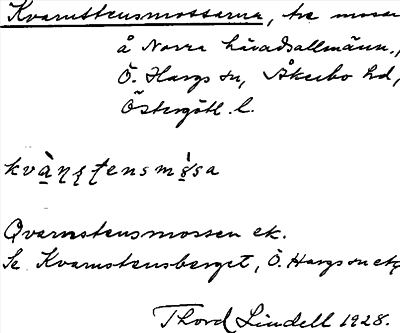 Kvarnstensmossarna, tre mossar
å Norra häradsallmänn.,
Ö. Hargs sn, Åkerbo hd,
Östergötl. l.
kvà̱ɳʂʈensmò̱sa
Qvarnstensmossen ek.
Se Kvarnstensberget, Ö. Hargs sn etc.
Thord Lindell 1928.